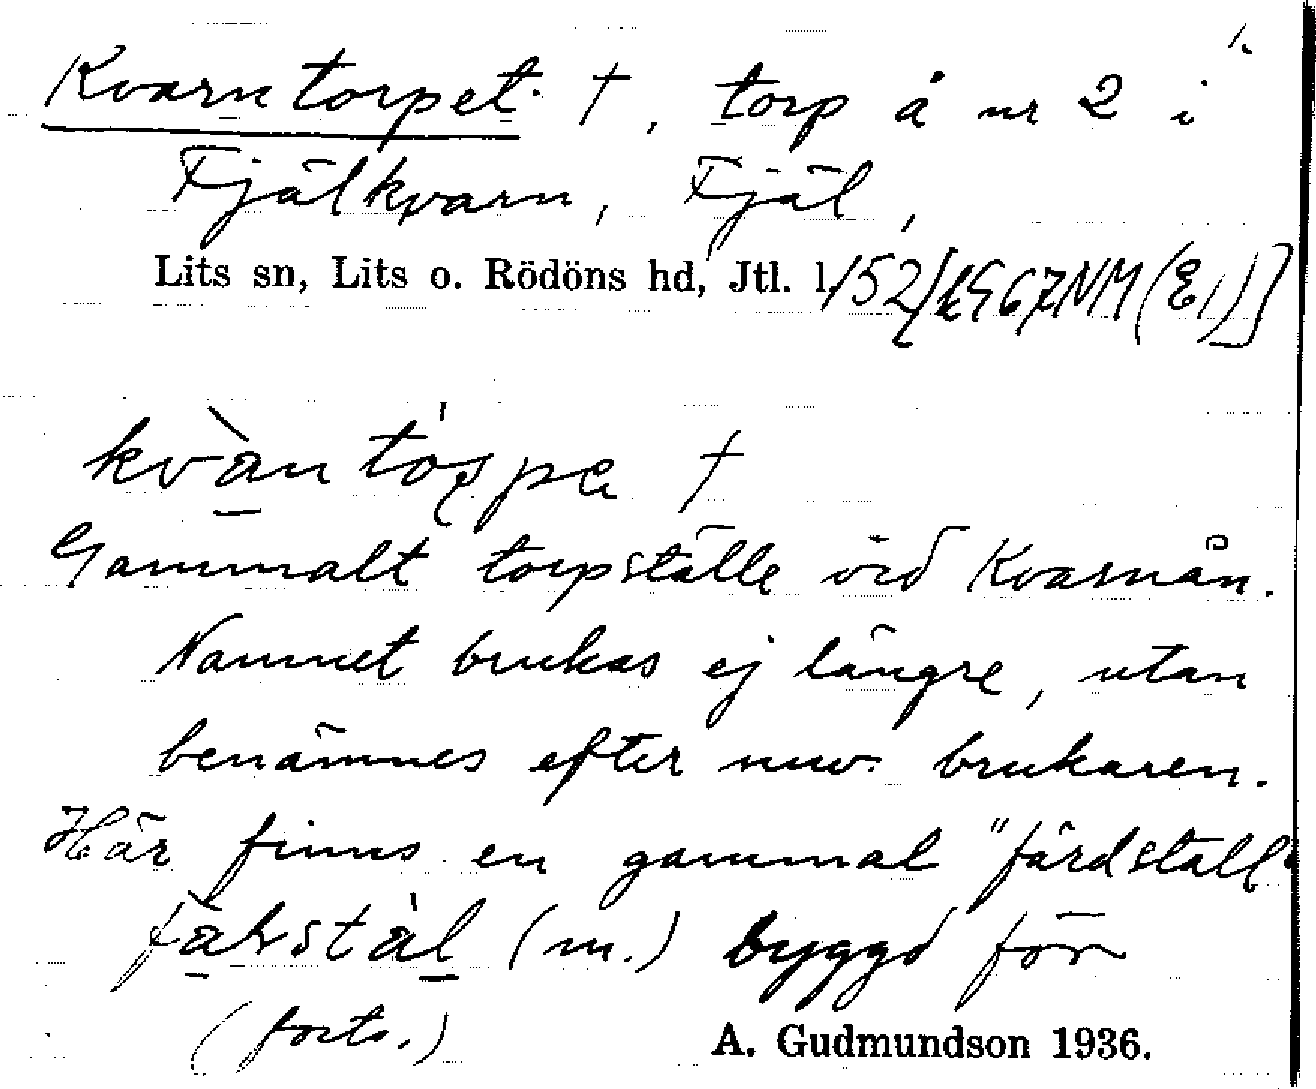 1.
Kvarntorpet †, torp å nr 2 i
Fjälkvarn, Fjäl,
Lits sn, Lits o. Rödöns hd, Jtl. l. /52/1967NM(E1)]
kvàntòspa †
Gammalt torpställe vid Kvarnån.
Namnet brukas ej längre, utan
benämnes efter nuv. brukaren.
Här finns en gammal "färdstall"
(m.) byggd för
(forts.)
A. Gudmundson 1936.